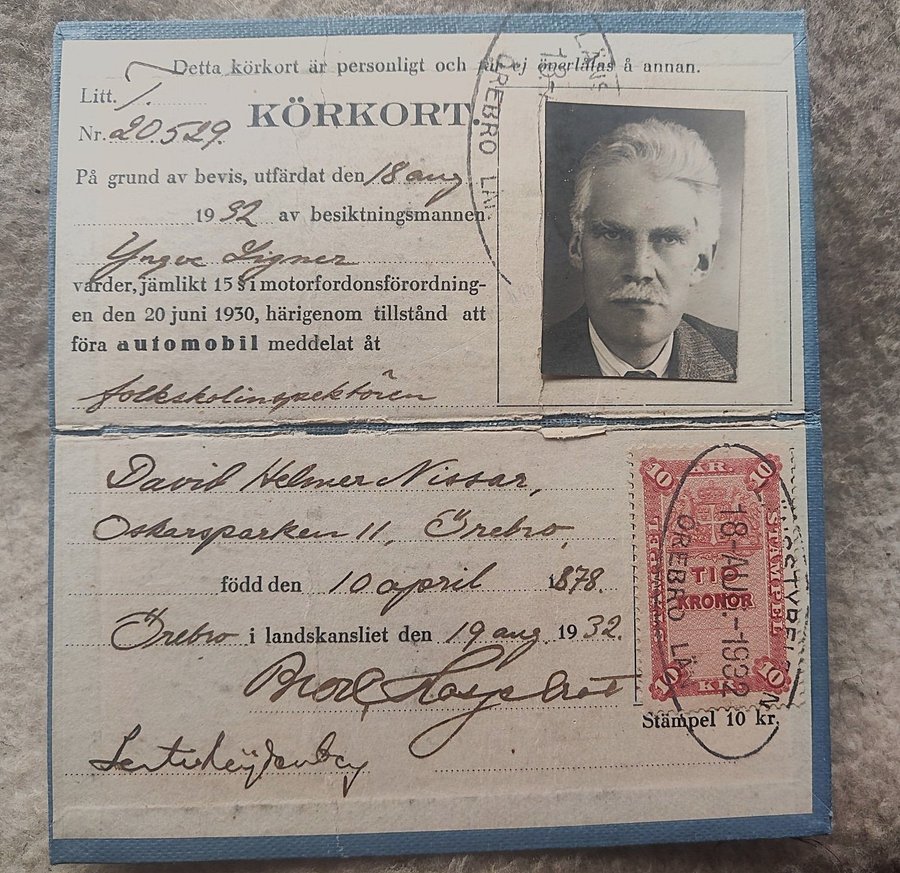 Detta körkort är personligt och får ej överlåtas å annan.
Litt. T.
Nr. 20.529.
KÖRKORT.
På grund av bevis, utfärdat den 18 aug
1932 av besiktningsmannen
Yngve Ligner
varder, jämlikt 15 § i motorfordonsförordning-
en den 20 juni 1930, härigenom tillstånd att
föra automobil meddelat åt
folkskolinspektören
ÖREBRO LÄN
David Helmer Nissar,
Oskarsparken 11, Örebro,
född den 10 april 1878.
Örebro i landskansliet den 19 aug 1932.
10 KR. 10
STÄMPEL
TIO
KRONOR
10 KR. 10
18-AUG.-1932
ÖREBRO LÄN
Stämpel 10 kr.